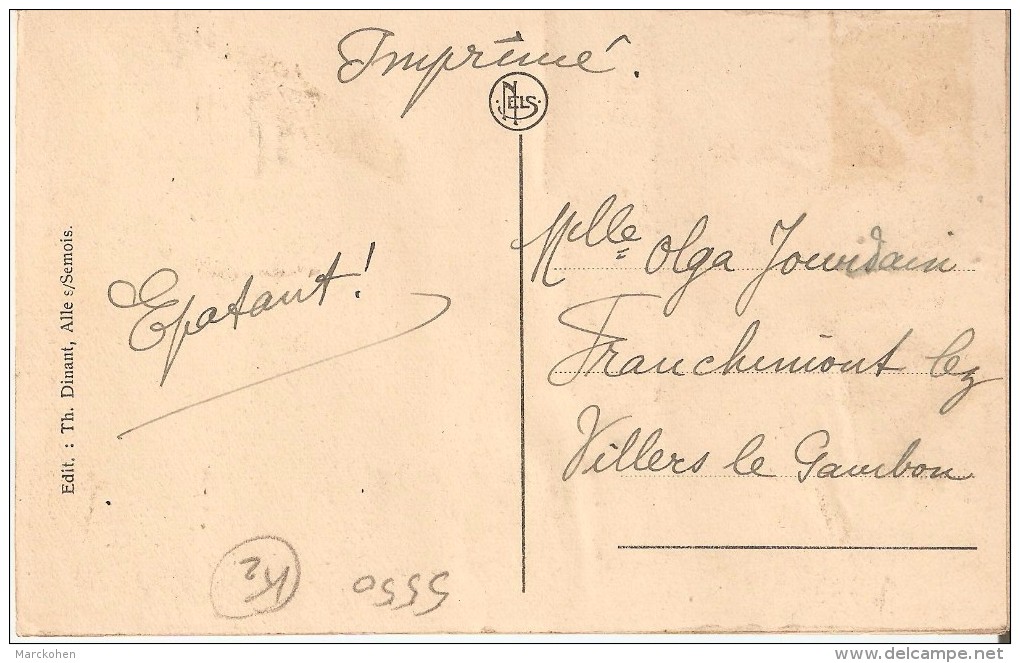 Imprimé.
NELS
Mlle Olga Jourdain
Franchimont lez
Villers le Gambon
Epatant!
Edit. : Th. Dinant, Alle s/Semois.
5550
K2
Marckohen
delcampe.net